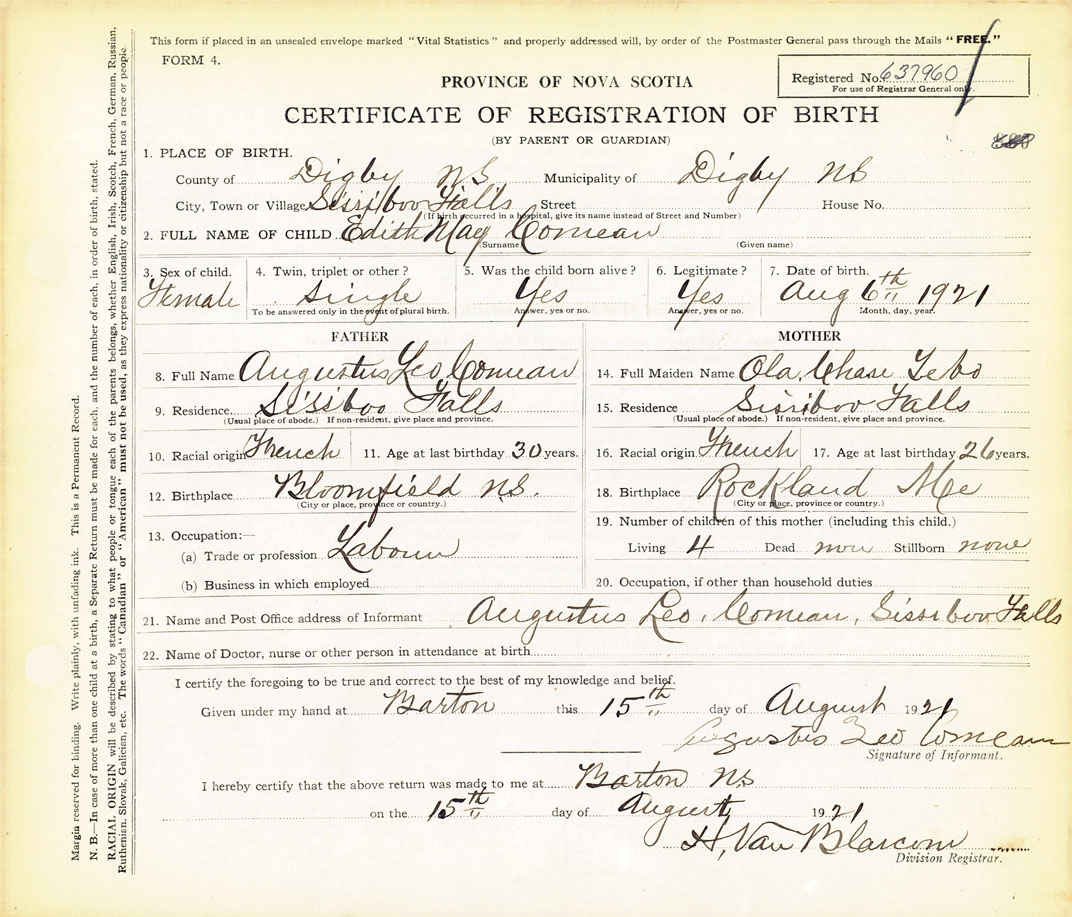 This form if placed in an unsealed envelope marked "Vital Statistics" and properly addressed will, by order of the Postmaster General pass through the Mails "FREE."
FORM 4.
Registered No. 637960
For use of Registrar General only.
PROVINCE OF NOVA SCOTIA
CERTIFICATE OF REGISTRATION OF BIRTH
(BY PARENT OR GUARDIAN)
1. PLACE OF BIRTH.
County of Digby NS Municipality of Digby NS
City, Town or Village Sissiboo Falls Street House No.
(If birth occurred in a hospital, give its name instead of Street and Number)
2. FULL NAME OF CHILD Edith May Comeau
(Surname) (Given name)
3. Sex of child. 4. Twin, triplet or other? 5. Was the child born alive? 6. Legitimate? 7. Date of birth.
Female Single Yes Yes Aug 6th 1921
To be answered only in the event of plural birth. Answer, yes or no. Answer, yes or no. Month, day, year.
FATHER
8. Full Name Augustus Leo Comeau
9. Residence Sissiboo Falls
(Usual place of abode.) If non-resident, give place and province.
10. Racial origin French 11. Age at last birthday 30 years.
12. Birthplace Bloomfield N.S.
(City or place, province or country.)
13. Occupation:—
(a) Trade or profession Labour
(b) Business in which employed
MOTHER
14. Full Maiden Name Ola. Chase Tebo
15. Residence Sissiboo Falls
(Usual place of abode.) If non-resident, give place and province.
16. Racial origin French 17. Age at last birthday 26 years.
18. Birthplace Rockland Me
(City or place, province or country.)
19. Number of children of this mother (including this child.)
Living 4 Dead non Stillborn none
20. Occupation, if other than household duties
21. Name and Post Office address of Informant Augustus Leo. Comeau, Sissiboo Falls
22. Name of Doctor, nurse or other person in attendance at birth
I certify the foregoing to be true and correct to the best of my knowledge and belief.
Given under my hand at Barton this 15th day of August 1921
Augustus Leo Comeau
Signature of Informant.
I hereby certify that the above return was made to me at Barton NS
on the 15th day of August 1921
H, Van Blarcom
Division Registrar.
Margin reserved for binding. Write plainly, with unfading ink. This is a Permanent Record.
N. B.—In case of more than one child at a birth, a Separate Return must be made for each, and the number of each, in order of birth, stated.
RACIAL ORIGIN will be described by stating to what people or tongue each of the parents belongs, whether English, Irish, Scotch, French, German, Russian,
Ruthenian, Slovak, Galician, etc. The words "Canadian" or "American" must not be used, as they express nationality or citizenship but not a race or people.